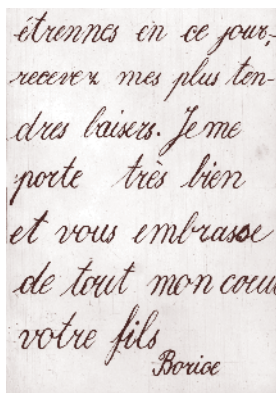 étrennes en ce jour,
recevez mes plus ten-
dres baisers. Je me
porte très bien
et vous embrasse
de tout mon cœur
votre fils
Borice